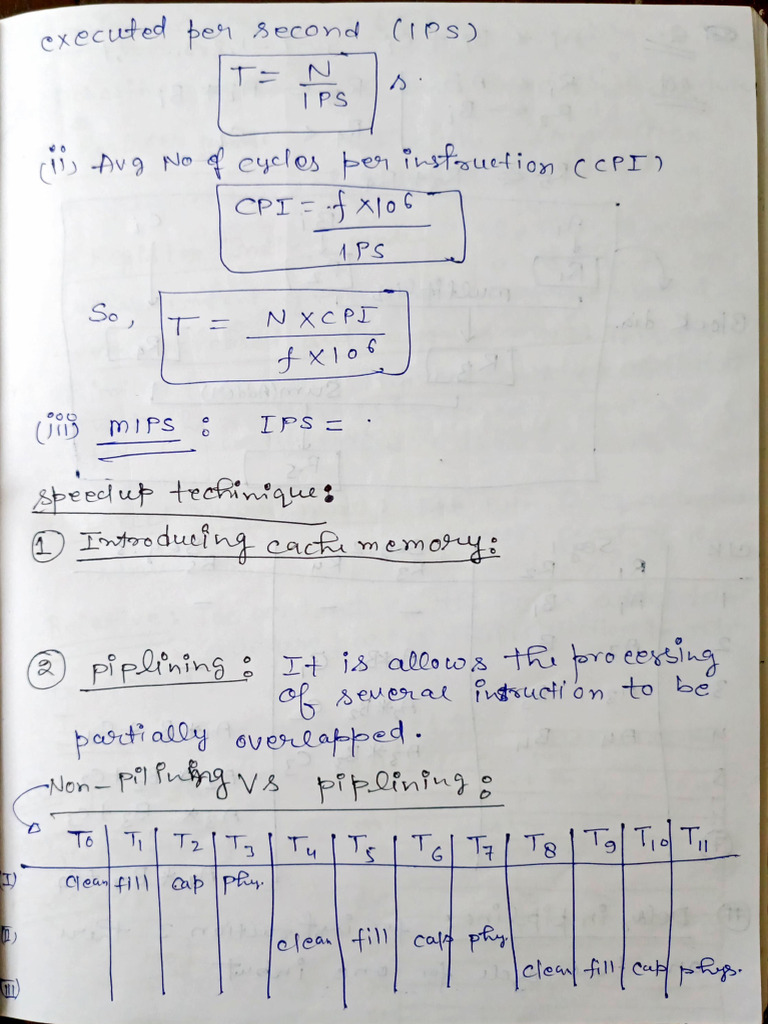 executed per second (IPS)
T = N / IPS s.
(ii) Avg No of cycles per instruction (CPI)
CPI = f X10⁶ / IPS
So, T = N X CPI / f X10⁶
(iii) MIPS : IPS =
speedup techinique:
① Introducing cache memory:
② piplining : It is allows the processing
of several instruction to be
partially overlapped.
Non- Vs piplining :
T0 T1 T2 T3 T4 T5 T6 T7 T8 T9 T10 T11
(I) clean fill cap phy.
(II) clean fill cap phy.
(III) clean fill cap phys.